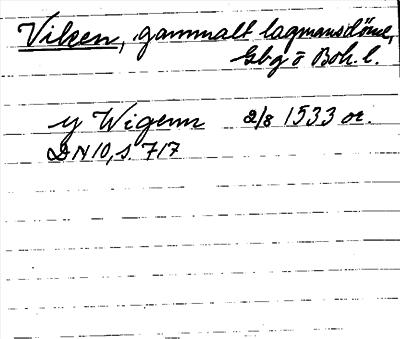 Vilsen, gammalt lagmansdöme,
Gbg o Boh. l.
y Wigenn 2/8 1533 or.
DN 10, s. 717